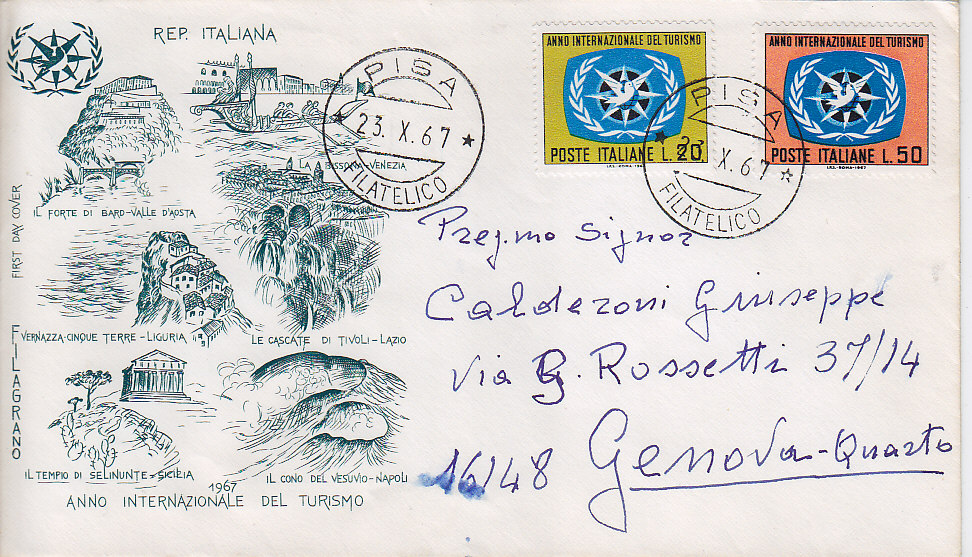 REP. ITALIANA
LA BISSONA-VENEZIA
IL FORTE DI BARD-VALLE D'AOSTA
FIRST DAY COVER
VERNAZZA-CINQUE TERRE-LIGURIA
LE CASCATE DI TIVOLI-LAZIO
FILAGRANO
IL TEMPIO DI SELINUNTE-SICIZIA
IL CONO DEL VESUVIO-NAPOLI
1967
ANNO INTERNAZIONALE DEL TURISMO
PISA
23.X.67
FILATELICO
ANNO INTERNAZIONALE DEL TURISMO
POSTE ITALIANE L. 20
ANNO INTERNAZIONALE DEL TURISMO
POSTE ITALIANE L. 50
I.P.S.-ROMA-1967
PISA
23.X.67
FILATELICO
Preg.mo Signor
Calderoni Giuseppe
Via G. Rossetti 37/14
16148 Genova-Quarto